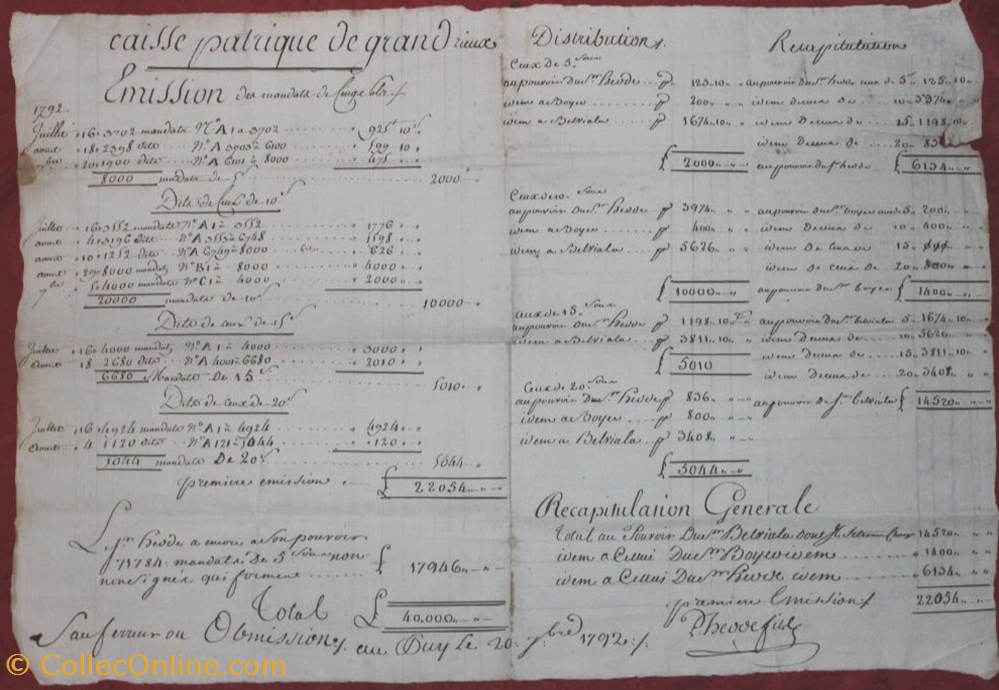 caisse patrique de grandrieux
Emission des mandats de
1792
Juillet 16 " 3702 mandats N° A 1 a 3702 925 " 10 s
aout 18 " 2398 dito N° A 3703 a 6100 599 " 10
7bre 20 " 1900 dito N° A 6101 a 8000 475 "
8000 mandats de 5 s 2000 "
Dits de Ceux de 10 s
Juillet 16 " 3552 mandats N° A 1 a 3552 1776 " "
aout 4 " 3196 dito N° A 3553 a 6748 1598 " "
aout 10 " 1252 dito N° A 6749 a 8000 626 " "
aoust 29 " 8000 mandats N° B 1 a 8000 4000 " "
7bre 4000 mandats N° C 1 a 4000 2000 " "
20000 mandats de 10 s 10000 "
Dits de ceux de 15 s
Juillet 16 " 4000 mandats N° A 1 a 4000 3000 " "
Aoust 18 2680 dito N° A 4001 a 6680 2010 " "
6680 Mandats De 15 s 5010 "
Dits de ceux de 20 s
Juillet 16 " 4924 mandats N° A 1 a 4924 4924 " "
Aoust 4 120 dito 120 "
5044 mandats De 20 s 5044 "
premiere emission £ 22054 " "
Le Sr hedde a encore a Son pouvoir
71784 mandats de 5 sous non
signés qui forment £ 17946 " "
Total £ 40,000 " "
Sauf erreur ou Obmission au Puy Le 20 7bre 1792 ./.
Distribution
Ceux de 5 Sous
au pouvoir du Sr hedde 125 " 10 "
idem a Boyer 200 " "
idem a Belviala 1674 " 10 "
£ 2000 " "
Ceux de 10 Sous
au pouvoir du Sr hedde 3974 " "
idem a Boyer 400 " "
idem a Belviala 5626 " "
£ 10000 " "
Ceux de 15 Sous
au pouvoir du Sr hedde 1198 " 10
idem a Belviala 3811 " 10
£ 5010
Ceux de 20 Sous
au pouvoir du Sr hedde 836 " "
idem a Boyer 800 " "
idem a Belviala 3408 " "
£ 5044 " "
Recapitulation
au pouvoir du Sr hedde ceux de 5 s 125 " 10 "
idem de ceux de 10 3974 " "
idem de ceux de 15 1198 " 10
idem de ceux de 20 83
au pouvoir du Sr hedde £ 6134 " "
au pouvoir du Sr boyer ceux de 5 200 " "
idem de ceux de 10 400 " "
idem de ceux de 15
idem de ceux de 20 800 " "
au pouvoir du Sr boyer £ 1400 " "
au pouvoir du Sr belviala 5 1674 " 10 "
idem de ceux de 10 5626 " "
idem de ceux de 15 3811 " 10 "
idem de ceux de 20 3408 "
au pouvoir du Sr belviala £ 14520 " "
Recapitulation Generale
Total au Pouvoir Du Sr Belviala 14520 " "
idem a Cellui Du Sr Boyer idem 1400 " "
idem a Cellui Du Sr hedde idem 6134 " "
premiere Emission 22054 " "
P. hedde fils
© CollecOnline.com